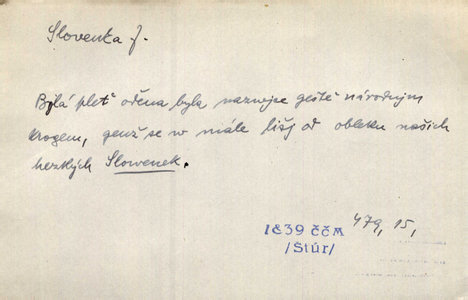 Slovenka f.
Bjlá pleť oděna byla naywjce geště národnjm
krogem, genž se w mále lišj od obleku našich
hezkých Slowenek.
1839 ČČM 479, 15,
/Štúr/